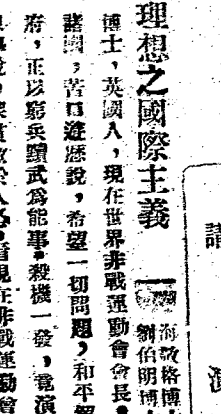 講演
理想之國際主義
海敦格博
劉伯明博
博士，英國人，現在世界非戰運動會會長，
諸國，苦口遊歷說，希望一切問題，和平解
府，正以窮兵黷武爲能事，殺機一發，竟演
看現在非戰運動會